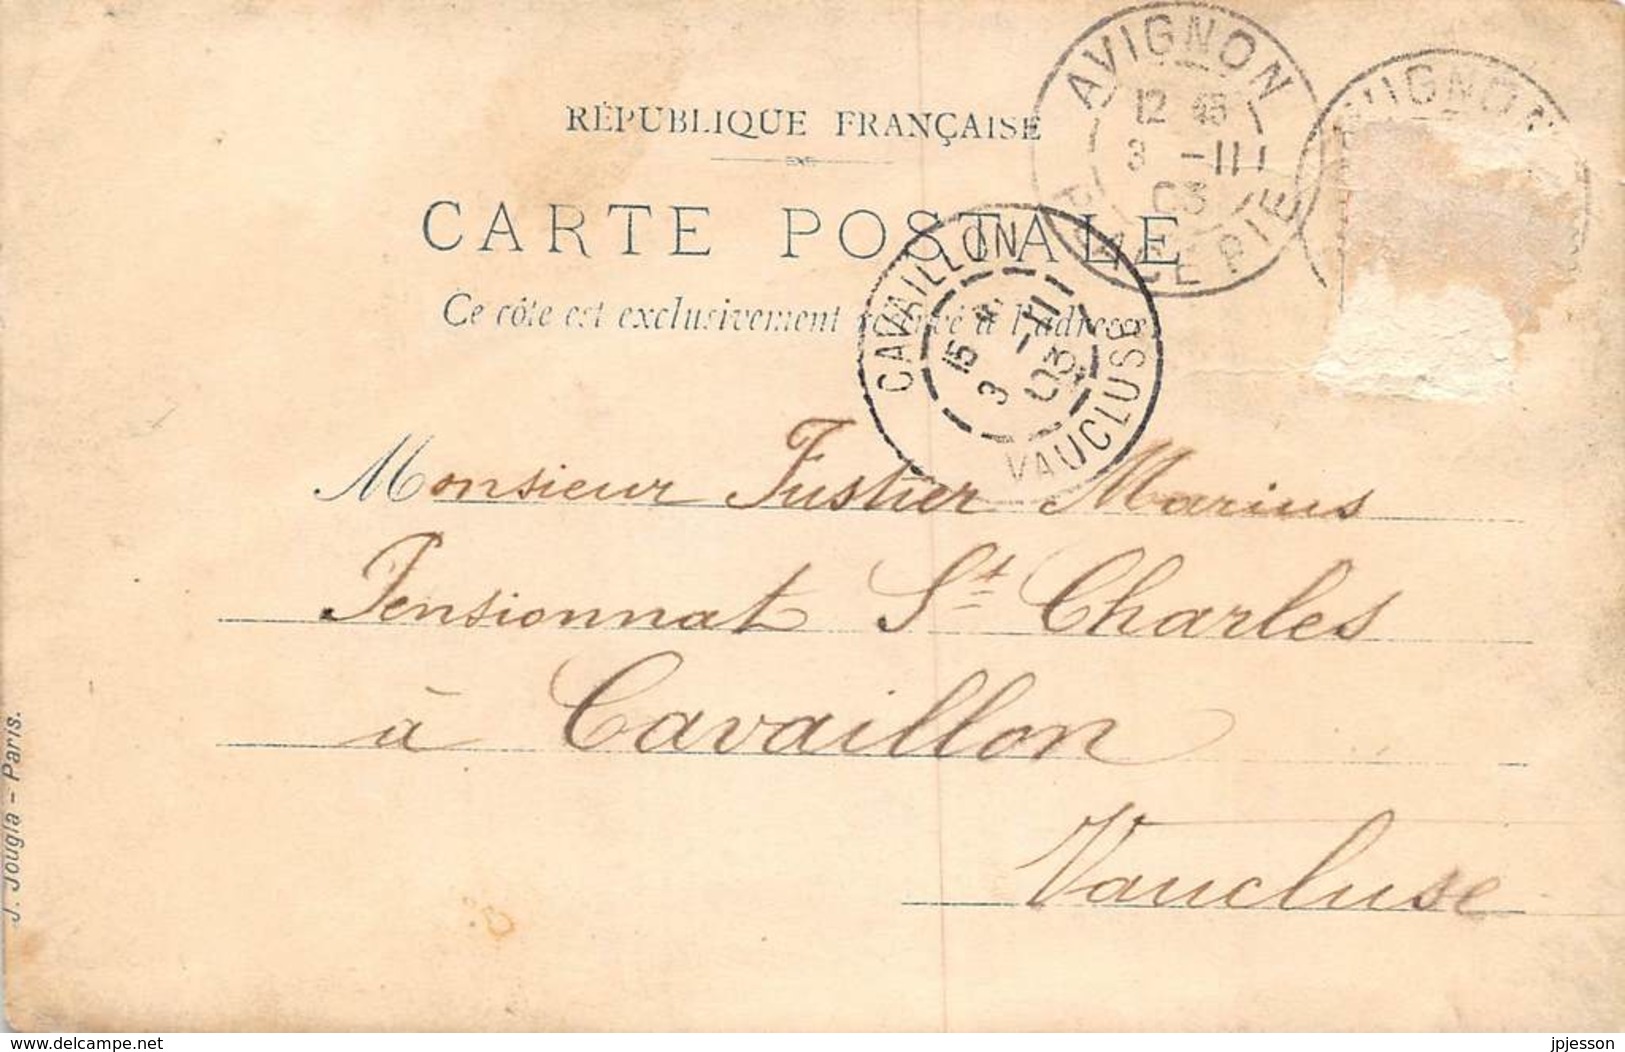 RÉPUBLIQUE FRANÇAISE
CARTE POSTALE
Ce côté est exclusivement réservé à l'adresse
AVIGNON
12 45
3 -III
03
AVIGNON
CAVAILLON
15
3 -III
03
VAUCLUSE
Monsieur Fustier Marius
Pensionnat St Charles
à Cavaillon
Vaucluse
J. Jougla - Paris.
www.delcampe.net
jpjesson